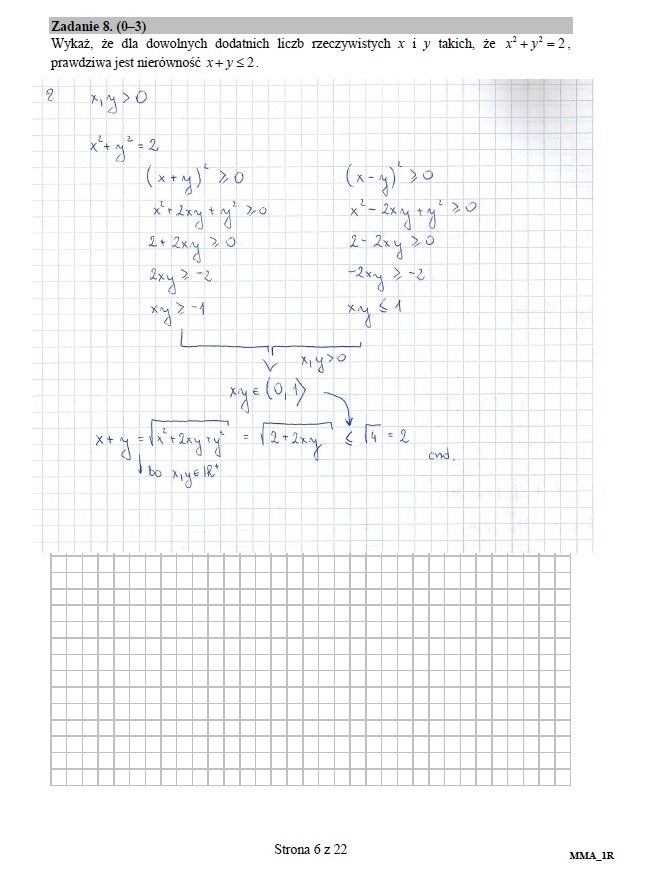 Zadanie 8. (0–3)
Wykaż, że dla dowolnych dodatnich liczb rzeczywistych x i y takich, że x² + y² = 2,
prawdziwa jest nierówność x + y ≤ 2.
x, y > 0
x² + y² = 2
(x + y)² ≥ 0 (x - y)² ≥ 0
x² + 2xy + y² ≥ 0 x² - 2xy + y² ≥ 0
2 + 2xy ≥ 0 2 - 2xy ≥ 0
2xy ≥ -2 -2xy ≥ -2
xy ≥ -1 xy ≤ 1
x, y > 0
xy ∈ (0, 1⟩
x + y = √(x² + 2xy + y²) = √(2 + 2xy) ≤ √4 = 2
cnd.
bo x, y ∈ ℝ⁺
Strona 6 z 22
MMA_1R